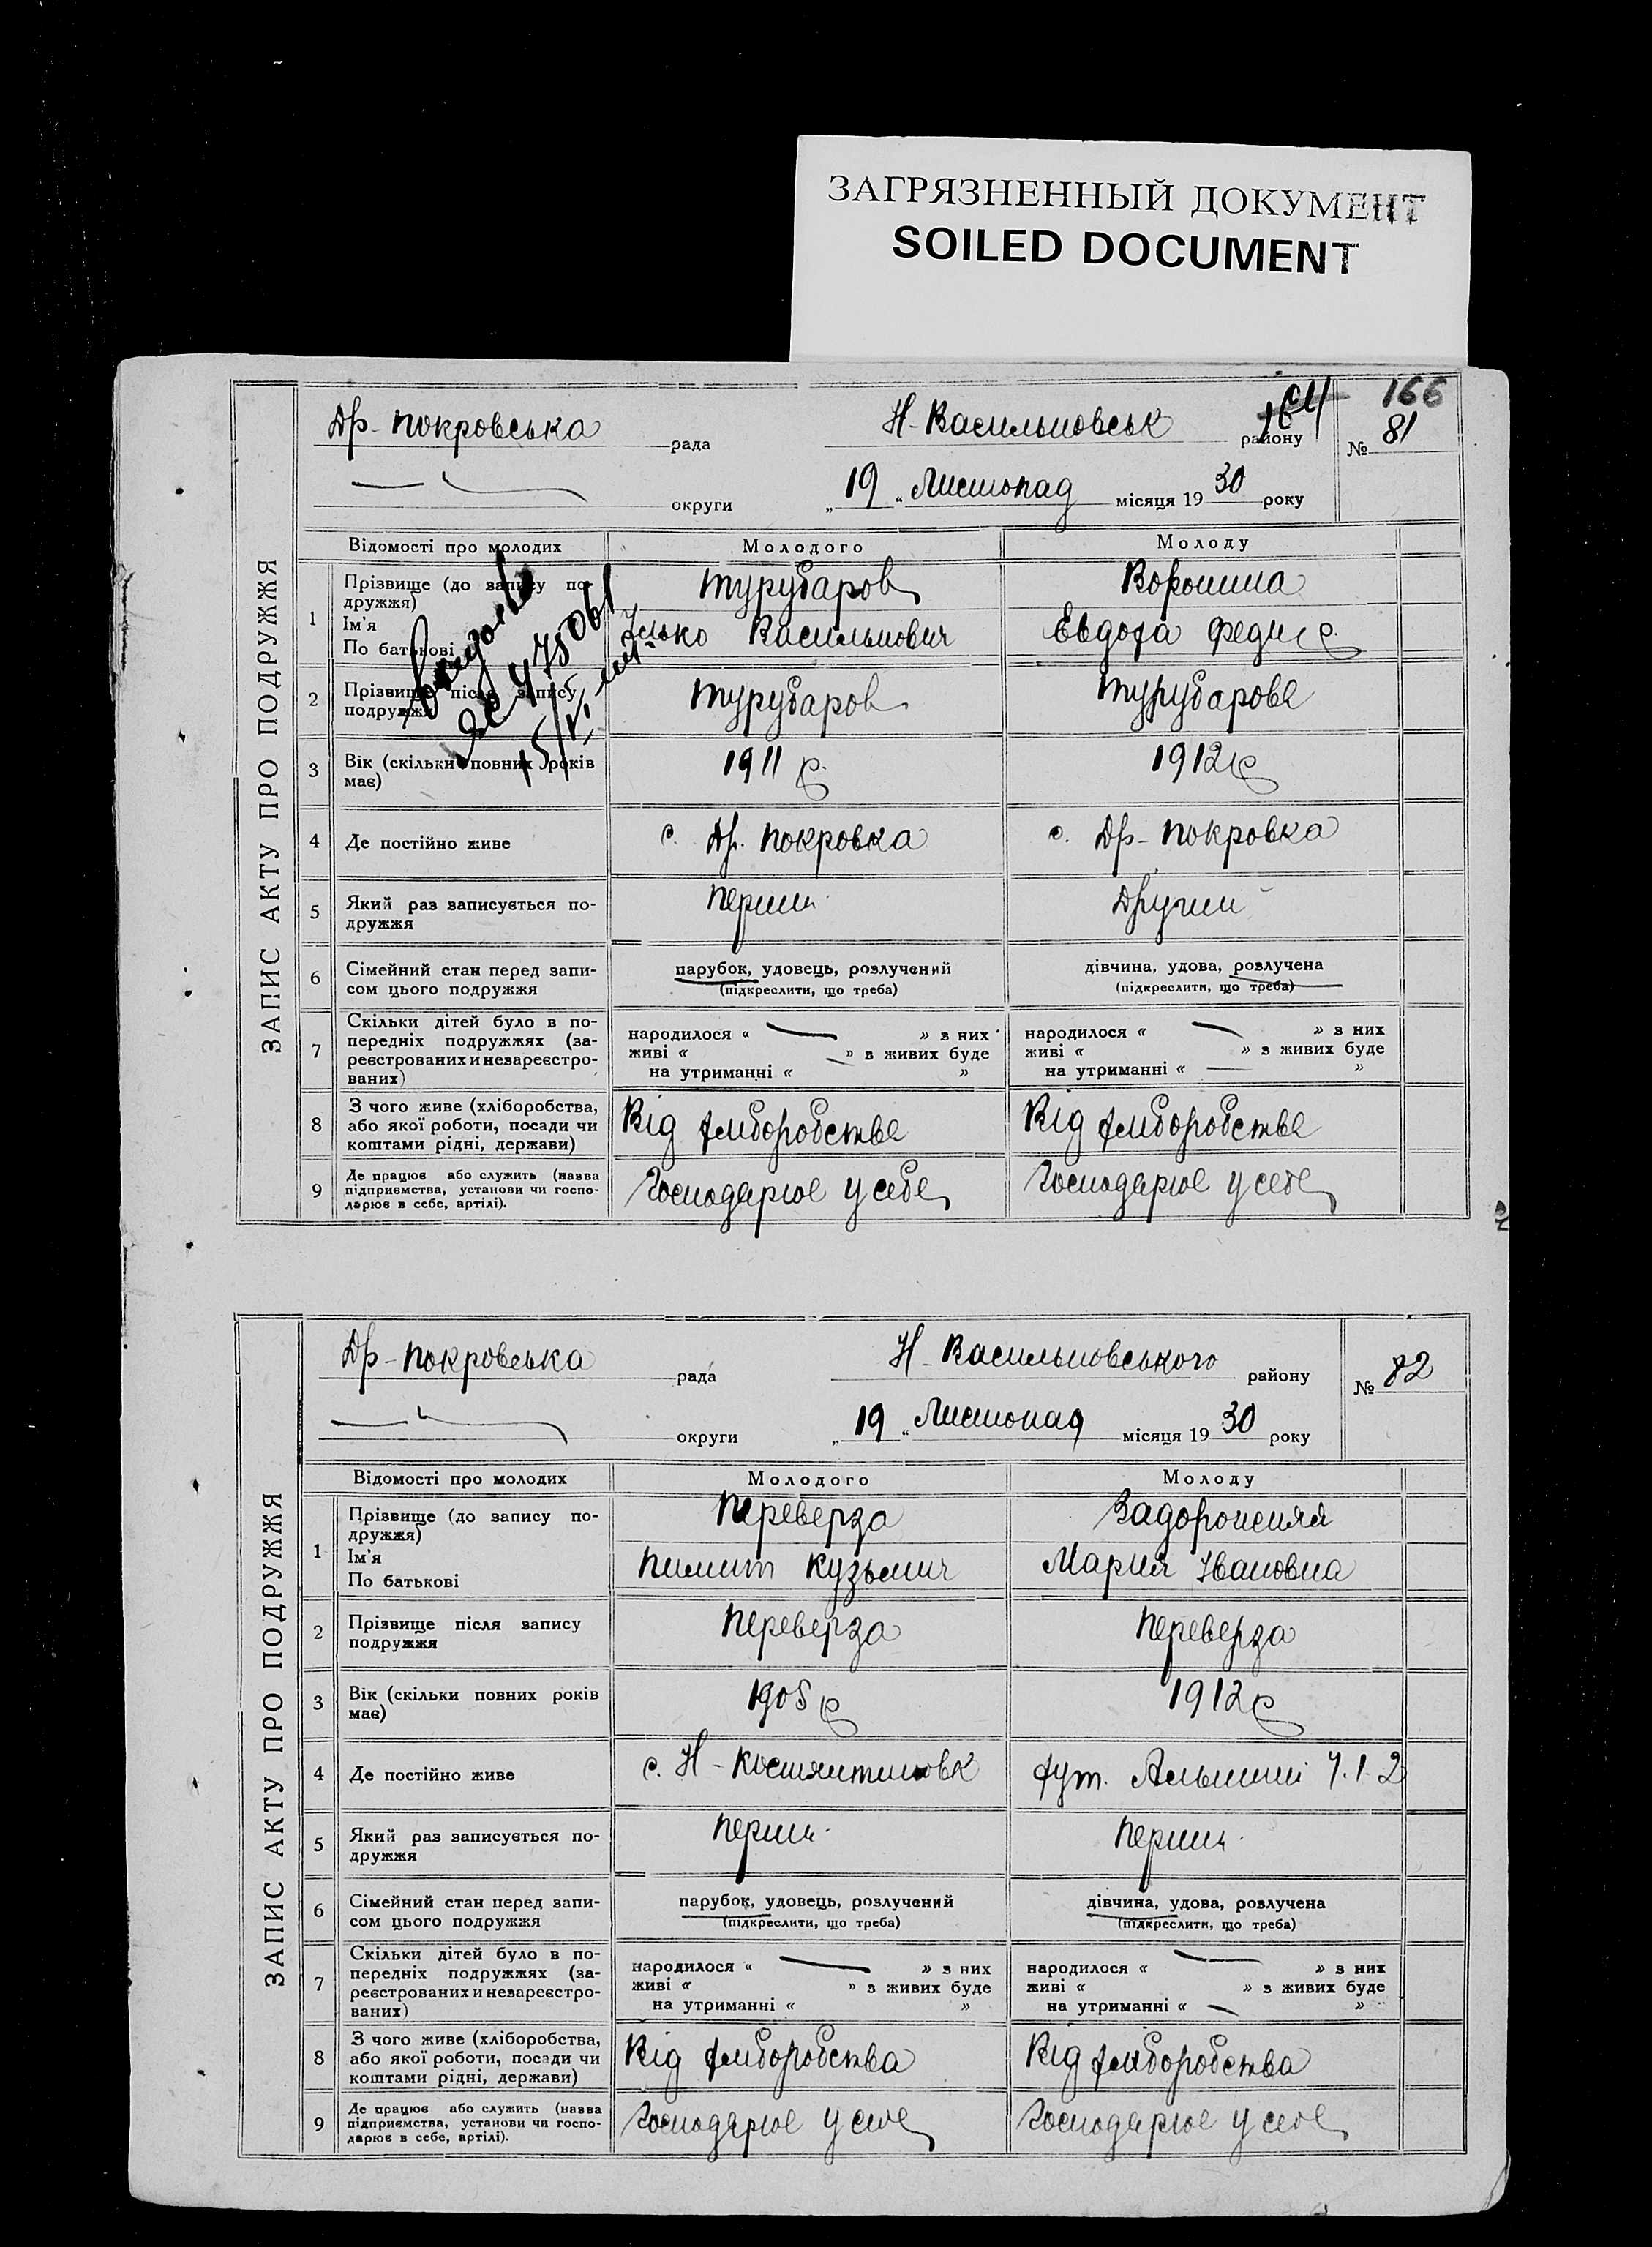 ЗАГРЯЗНЕННЫЙ ДОКУМЕНТ
SOILED DOCUMENT
166
ЗАПИС АКТУ ПРО ПОДРУЖЖЯ
Др-Покровська рада Н-Васильовськ району № 81
округи „19“ Листопад місяця 1930 року
Відомості про молодих Молодого Молоду
1 Прізвище (до запису подружжя) Турубаров Воронина
Ім'я По батькові Ілько Васильович Евдоха
2 Прізвище після запису подружжя Турубаров Турубарова
3 Вік (скільки повних років має) 1911 р. 1912 р
4 Де постійно живе с. Др. Покровка с. Др-Покровка
5 Який раз записується подружжя Перший Другий
6 Сімейний стан перед записом цього подружжя парубок, удовець, розлучений дівчина, удова, розлучена
(підкреслити, що треба) (підкреслити, що треба)
7 Скільки дітей було в попередніх подружжях (зареєстрованих и незареєстрованих)
народилося « » з них народилося « » з них
живі « » з живих буде живі « » з живих буде
на утриманні « » на утриманні « »
8 З чого живе (хліборобства, або якої роботи, посади чи коштами рідні, держави) Від хліборобства Від хліборобства
9 Де працює або служить (назва підприємства, установи чи господарює в себе, артілі). Господарює у себе Господарює у себе
ЗАПИС АКТУ ПРО ПОДРУЖЖЯ
Др-Покровська рада Н-Васильовського району № 82
округи „19“ Листопад місяця 1930 року
Відомості про молодих Молодого Молоду
1 Прізвище (до запису подружжя) Переверза Задорожняя
Ім'я По батькові Пимит Кузьмич Мария Івановна
2 Прізвище після запису подружжя Переверза Переверза
3 Вік (скільки повних років має) 1905 р 1912 р
4 Де постійно живе с. Н-Костянтиновк хут.
5 Який раз записується подружжя Перший Перший
6 Сімейний стан перед записом цього подружжя парубок, удовець, розлучений дівчина, удова, розлучена
(підкреслити, що треба) (підкреслити, що треба)
7 Скільки дітей було в попередніх подружжях (зареєстрованих и незареєстрованих)
народилося « » з них народилося « » з них
живі « » з живих буде живі « » з живих буде
на утриманні « » на утриманні « »
8 З чого живе (хліборобства, або якої роботи, посади чи коштами рідні, держави) Від хліборобства Від хліборобства
9 Де працює або служить (назва підприємства, установи чи господарює в себе, артілі). Господарює у себе Господарює у себе